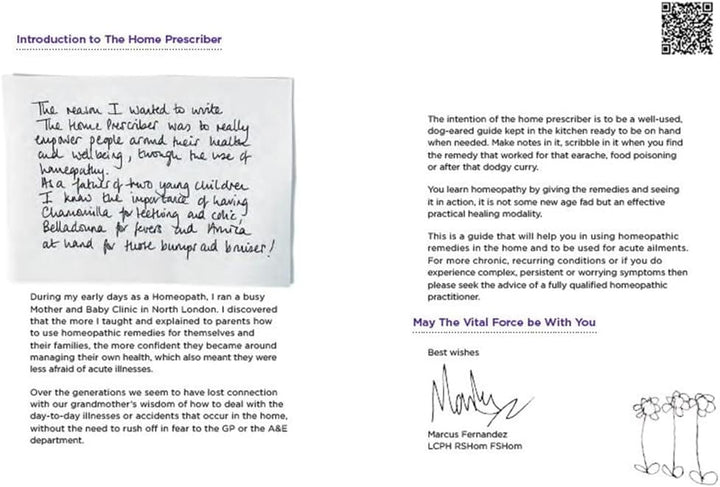 Introduction to The Home Prescriber
The reason I wanted to write
The Home Prescriber was to really
empower people around their health
and wellbeing, through the use of
homeopathy.
As a father of two young children
I know the importance of having
Chamomilla for teething and colic,
Belladonna for fevers and Arnica
at hand for those bumps and bruises!
During my early days as a Homeopath, I ran a busy
Mother and Baby Clinic in North London. I discovered
that the more I taught and explained to parents how
to use homeopathic remedies for themselves and
their families, the more confident they became around
managing their own health, which also meant they were
less afraid of acute illnesses.
Over the generations we seem to have lost connection
with our grandmother's wisdom of how to deal with the
day-to-day illnesses or accidents that occur in the home,
without the need to rush off in fear to the GP or the A&E
department.
The intention of the home prescriber is to be a well-used,
dog-eared guide kept in the kitchen ready to be on hand
when needed. Make notes in it, scribble in it when you find
the remedy that worked for that earache, food poisoning
or after that dodgy curry.
You learn homeopathy by giving the remedies and seeing
it in action, it is not some new age fad but an effective
practical healing modality.
This is a guide that will help you in using homeopathic
remedies in the home and to be used for acute ailments.
For more chronic, recurring conditions or if you do
experience complex, persistent or worrying symptoms then
please seek the advice of a fully qualified homeopathic
practitioner.
May The Vital Force be With You
Best wishes
Marcus Fernandez
LCPH RSHom FSHom